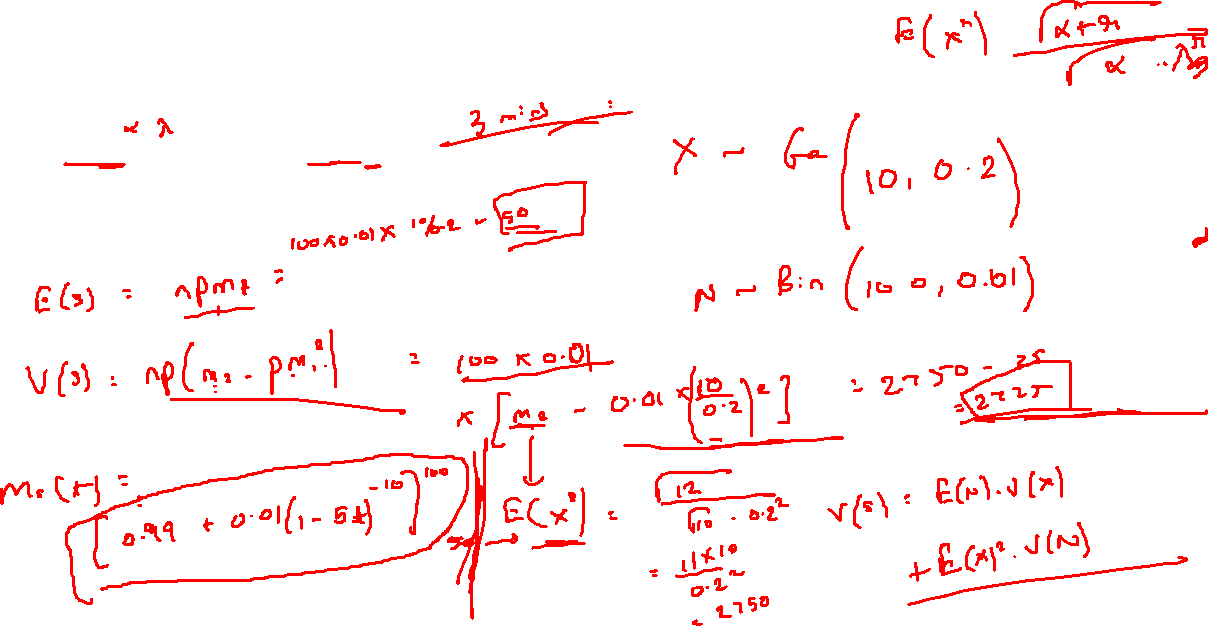 E(xⁿ) √(α+r) / √α · λʳ
α λ
3 mins
X ~ Ga(10, 0.2)
100 x 0.01 x 10/0.2 = 50
E(S) = npm₁ =
N ~ Bin(100, 0.01)
V(S) = np(m₂ - pm₁²) = 100 x 0.01
x [m₂ - 0.01 x (10/0.2)²] = 2750 - 25
= 2725
Ms(t) =
[0.99 + 0.01(1 - 5t)⁻¹⁰]¹⁰⁰
E(x²) = √12 / √10 · 0.2²
= 11x10 / 0.2²
= 2750
V(S) = E(N).V(X)
+ E(X)².V(N)